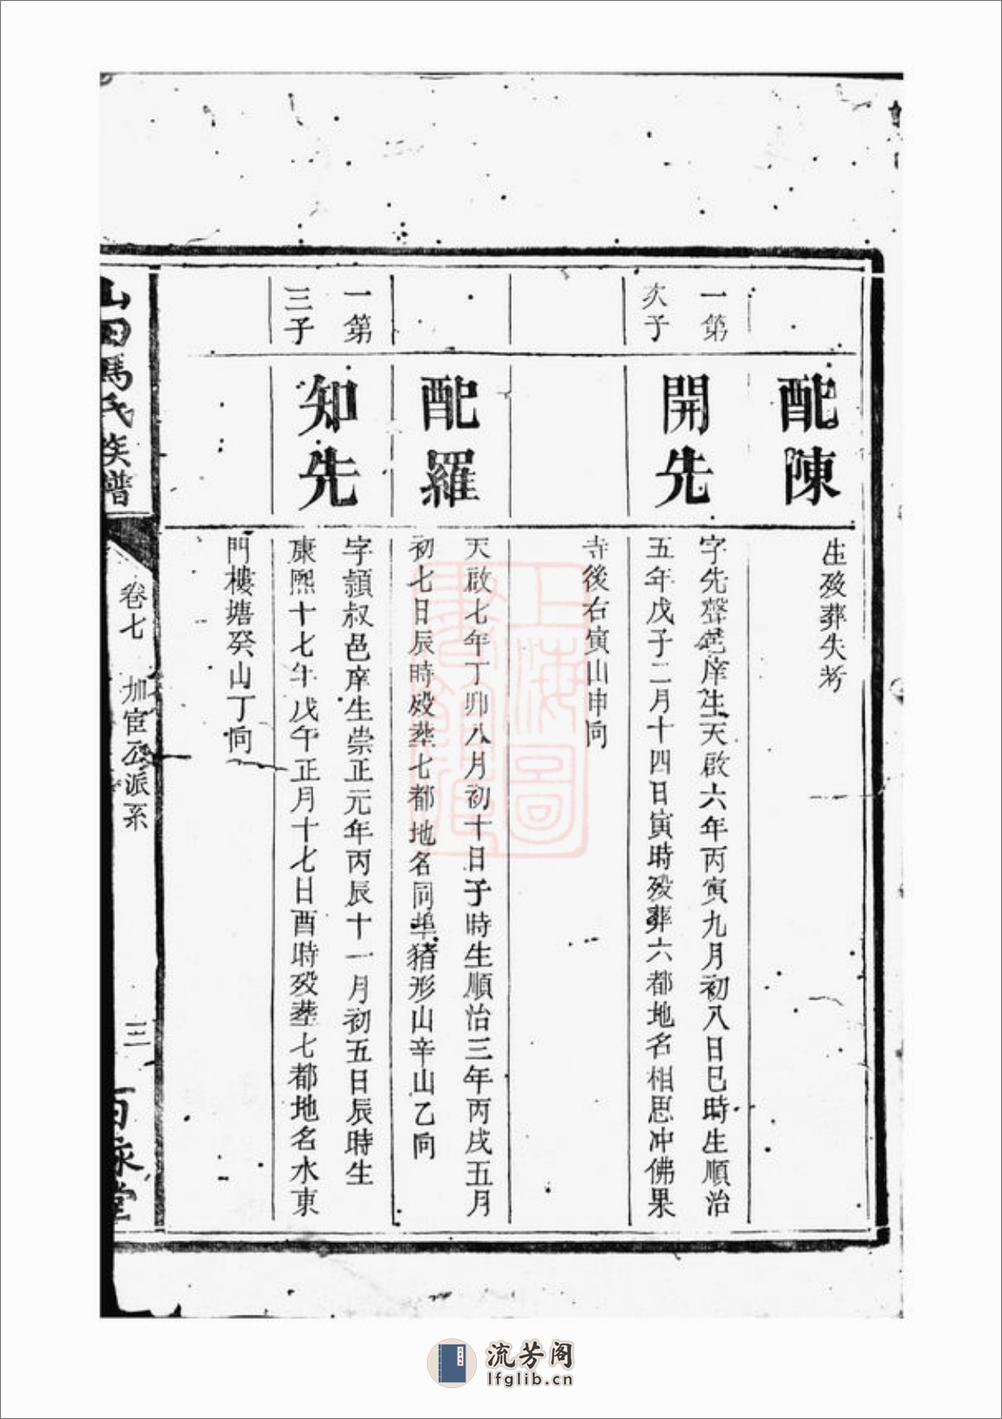 配陳
生殁葬失考
一第
次子
開先
字先聲邑庠生天啟六年丙寅九月初八日巳時生順治
五年戊子二月十四日寅時殁葬六都地名相思冲佛果
寺後右寅山申向
配羅
天啟七年丁卯八月初十日子時生順治三年丙戌五月
初七日辰時殁葬七都地名同埠猪形山辛山乙向
一第
三子
知先
字頴叔邑庠生崇正元年丙辰十一月初五日辰時生
康熙十七年戊午正月十七日酉時殁葬七都地名水東
門樓塘癸山丁向
山田馬氏族譜
卷七 加宦公派系
三
百泳堂
上海圖書館藏
流芳阁
lfglib.cn